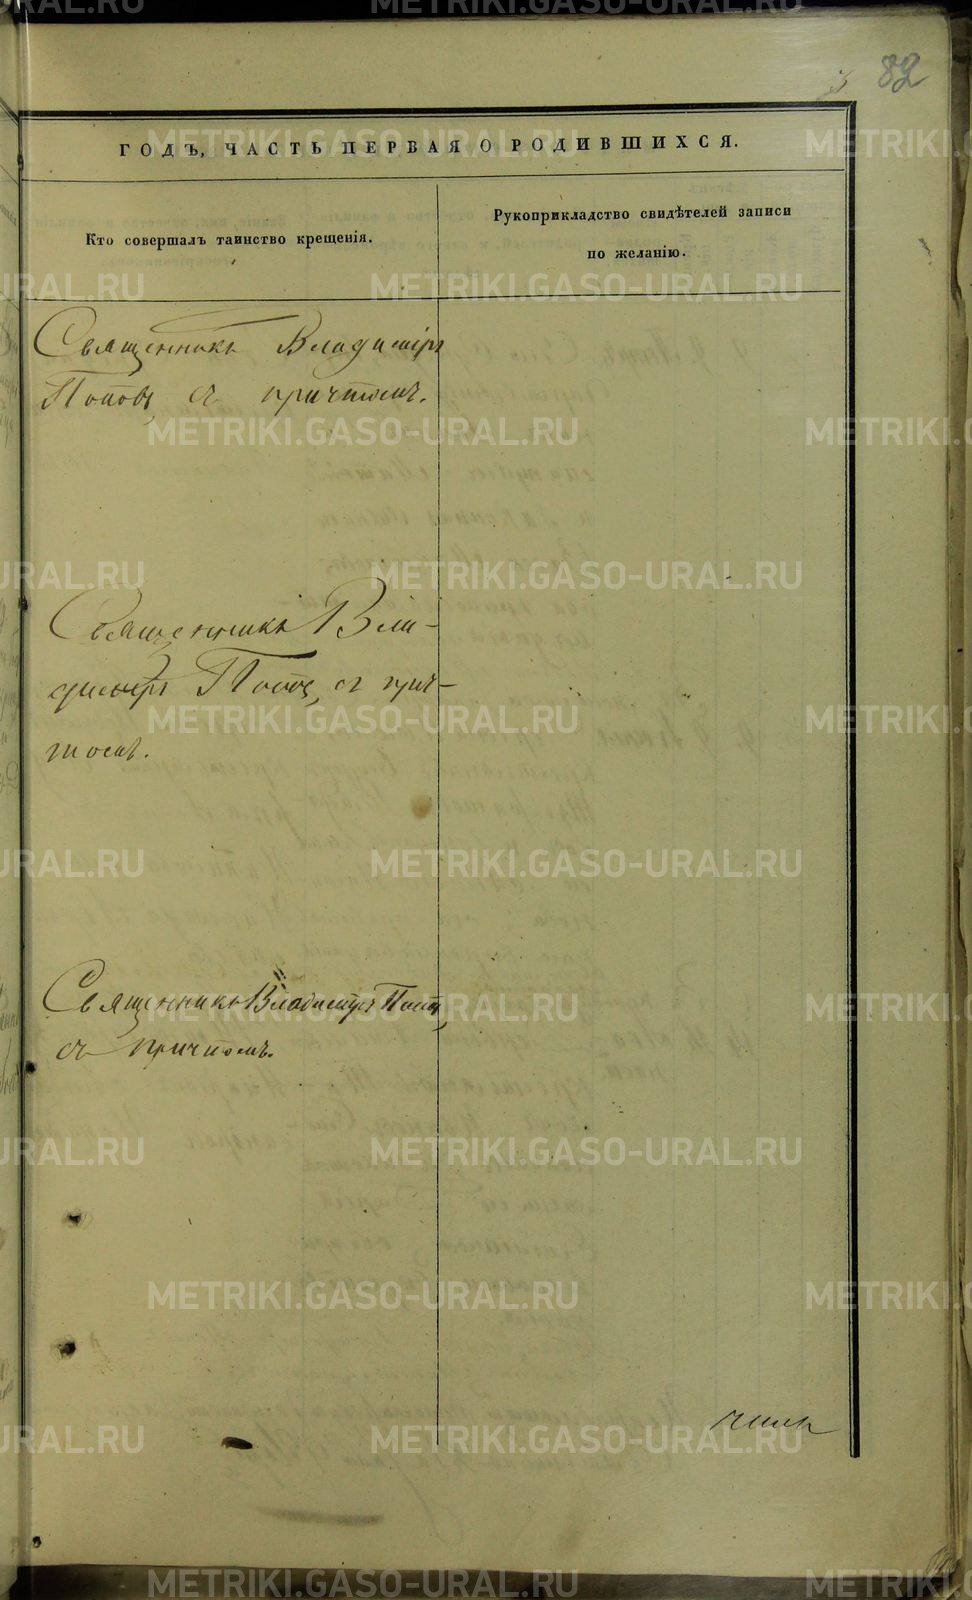 82
ГОДЪ, ЧАСТЬ ПЕРВАЯ О РОДИВШИХСЯ.
Кто совершалъ таинство крещенія.
Рукоприкладство свидѣтелей записи
по желанію.
Священникъ Владиміръ
Поповъ, съ причтомъ.
Священникъ Вла-
диміръ Поповъ, съ прич-
томъ.
Священникъ Владиміръ Поповъ,
съ причтомъ.
METRIKI.GASO-URAL.RU